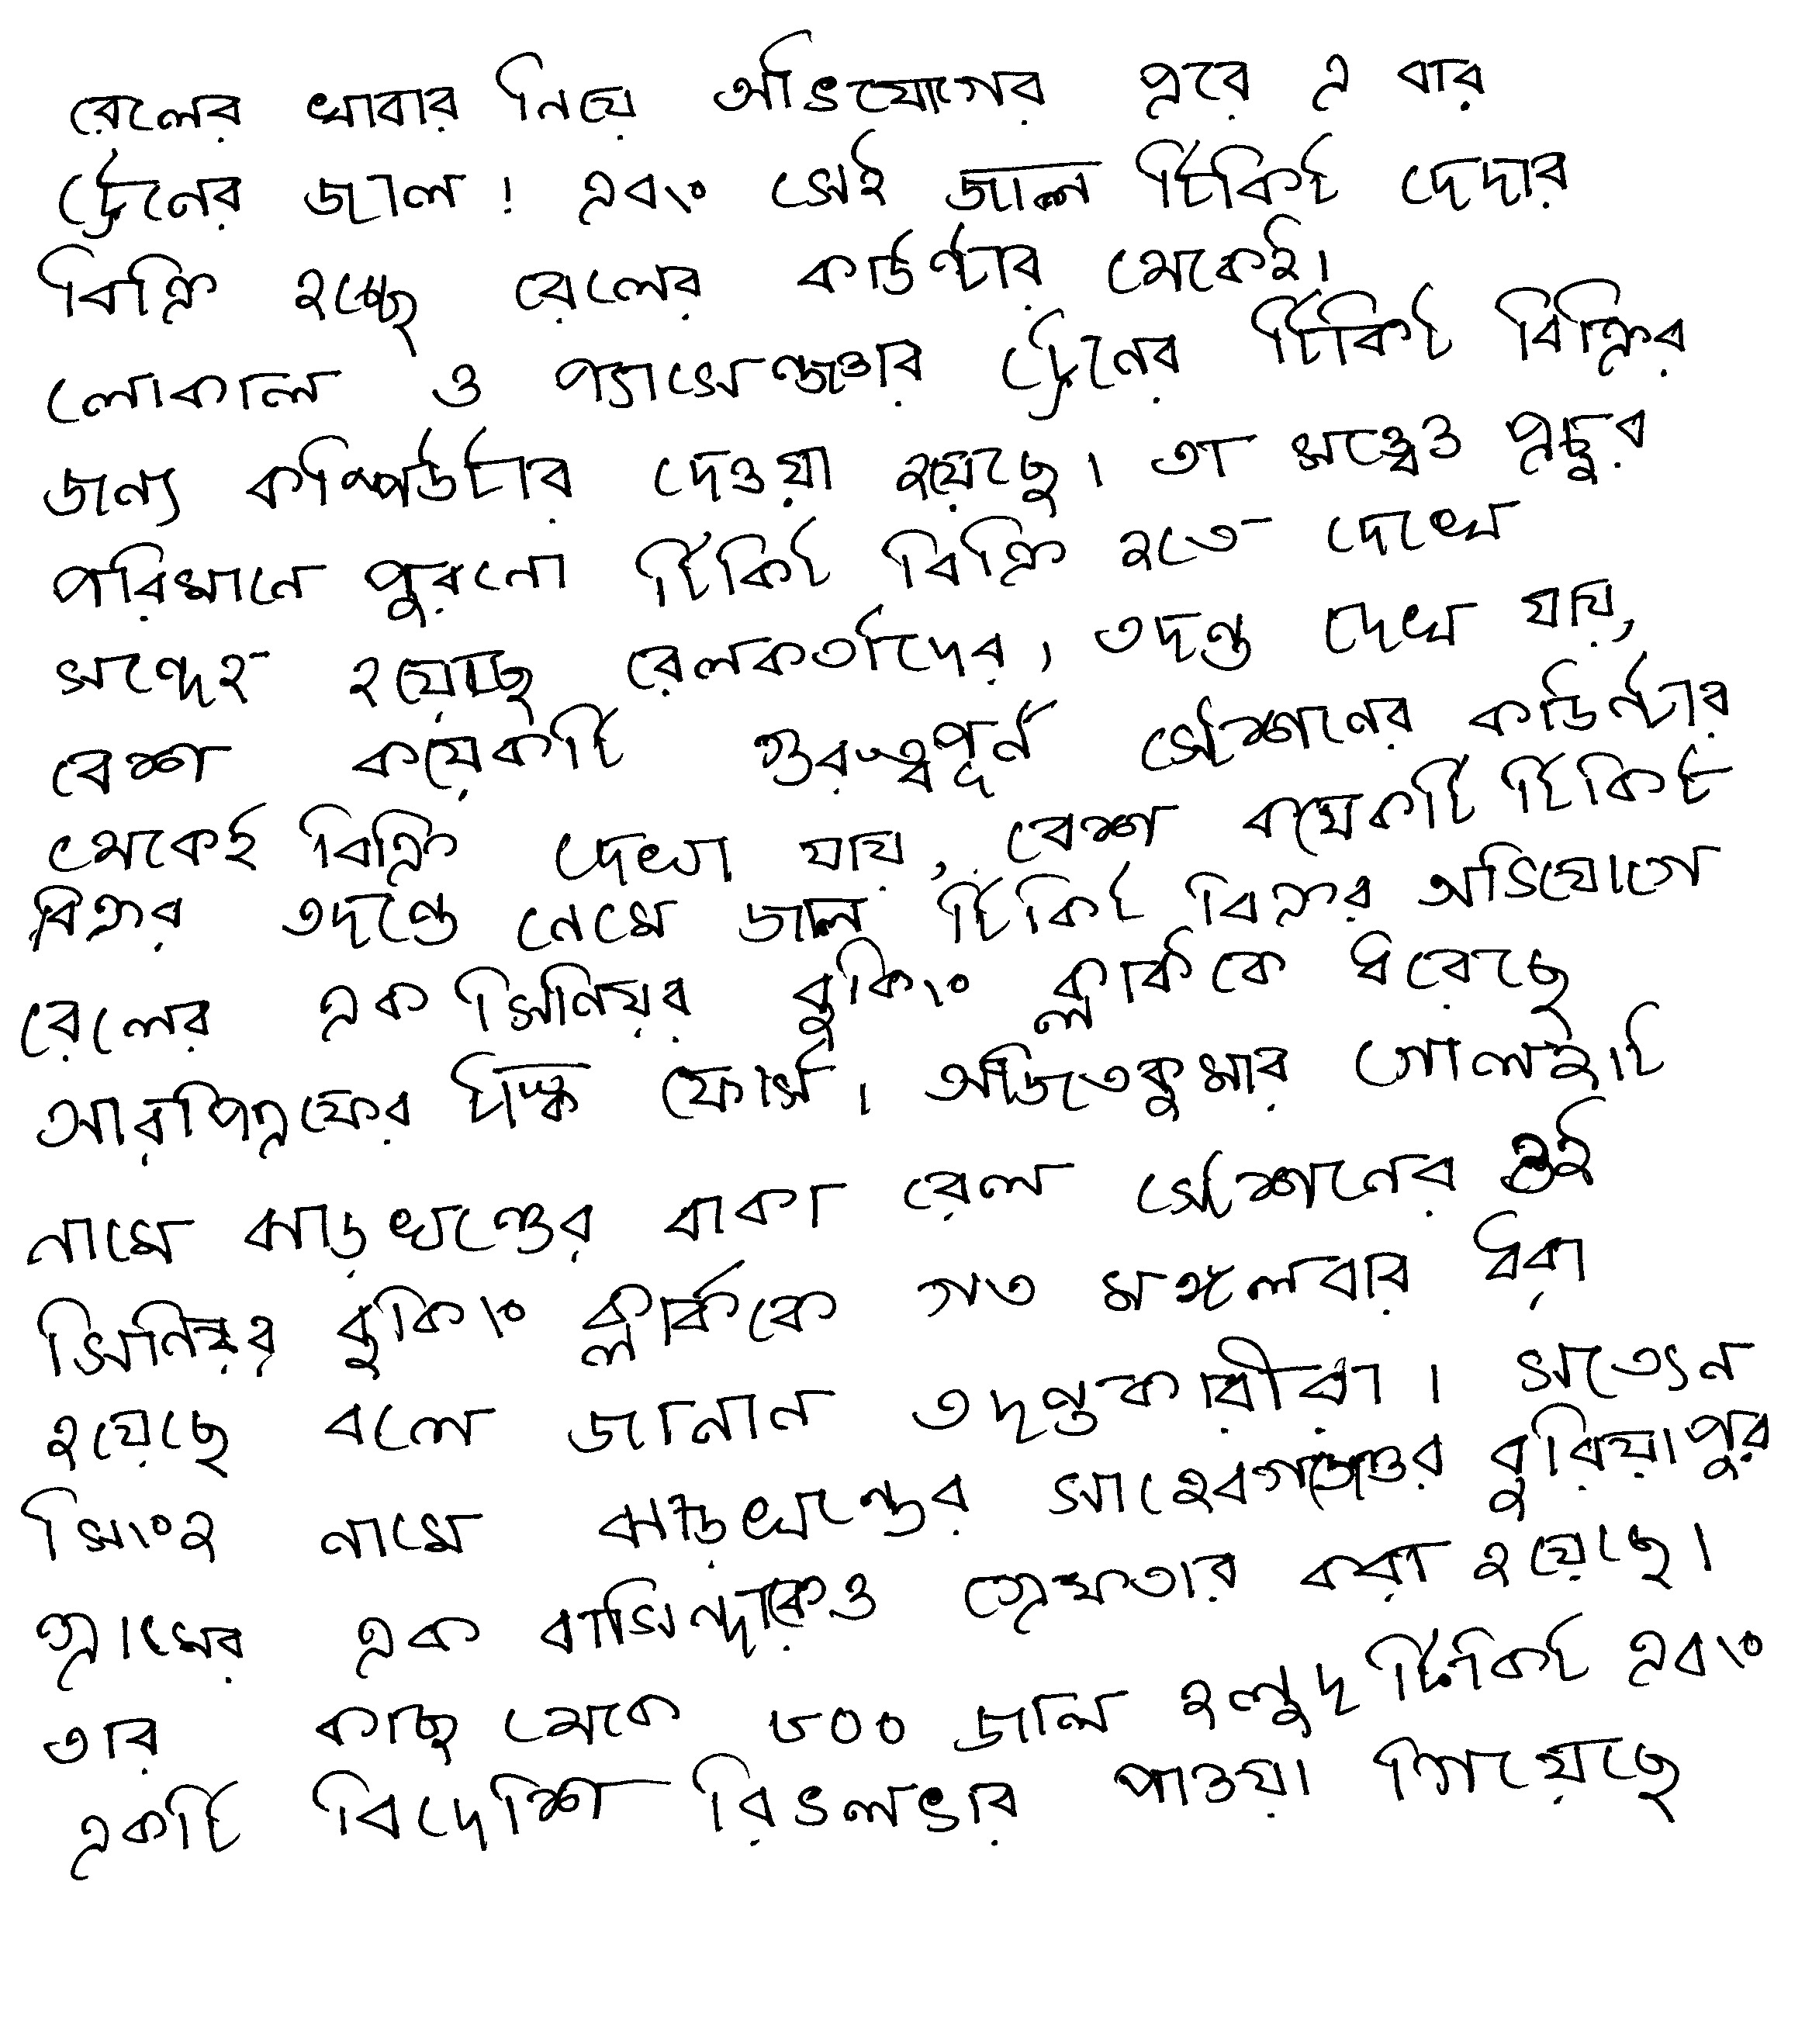 রেলের খাবার নিয়ে অভিযোগের পরে এ বার
ট্রেনের জাল! এবং সেই জাল টিকিট দেদার
বিক্রি হচ্ছে রেলের কাউন্টার থেকেই।
লোকাল ও প্যাসেঞ্জার ট্রেনের টিকিট বিক্রির
জন্য কম্পিউটার দেওয়া হয়েছে। তা সত্ত্বেও প্রচুর
পরিমানে পুরনো টিকিট বিক্রি হতে দেখে
সন্দেহ হয়েছে রেলকর্তাদের। তদন্ত দেখা যায়,
বেশ কয়েকটি গুরুত্বপূর্ন স্টেশনের কাউন্টার
থেকেই বিক্রি দেখা যায়, বেশ কয়েকটি টিকিট
বিক্রর তদন্তে নেমে জাল টিকিট বিক্রর অভিযোগে
রেলের এক সিনিয়র বুকিং ক্লার্ককে ধরেছে
আরপিএফের টাস্ক ফোর্স। অজিতকুমার গোলহাট
নামে ঝাড়খণ্ডের বাকা রেল স্টেশনের ওই
সিনিয়র বুকিং ক্লার্ককে গত মঙ্গলবার ধরা
হয়েছে বলে জানান তদন্তকারীরা। সত্যেন
সিংহ নামে ঝাড়খন্ডের সাহেবগঞ্জের বুরিয়াপুর
গ্রামের এক বাসিন্দাকেও গ্রেফতার করা হয়েছে।
তার কাছ থেকে ৮০০ জাল হলুদ টিকিট এবং
একটি বিদেশি রিভলভার পাওয়া গিয়েছে